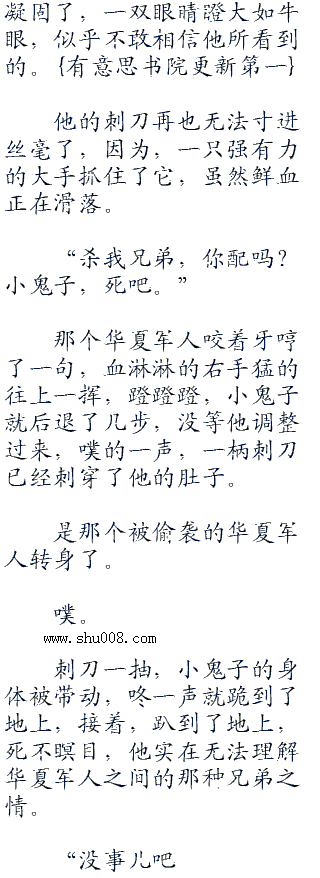 凝固了，一双眼睛瞪大如牛
眼，似乎不敢相信他所看到
的。{有意思书院更新第一}
他的刺刀再也无法寸进
丝毫了，因为，一只强有力
的大手抓住了它，虽然鲜血
正在滑落。
“杀我兄弟，你配吗？
小鬼子，死吧。”
那个华夏军人咬着牙哼
了一句，血淋淋的右手猛的
往上一挥，蹬蹬蹬，小鬼子
就后退了几步，没等他调整
过来，噗的一声，一柄刺刀
已经刺穿了他的肚子。
是那个被偷袭的华夏军
人转身了。
噗。
www.shu008.com
刺刀一抽，小鬼子的身
体被带动，咚一声就跪到了
地上，接着，趴到了地上，
死不瞑目，他实在无法理解
华夏军人之间的那种兄弟之
情。
“没事儿吧